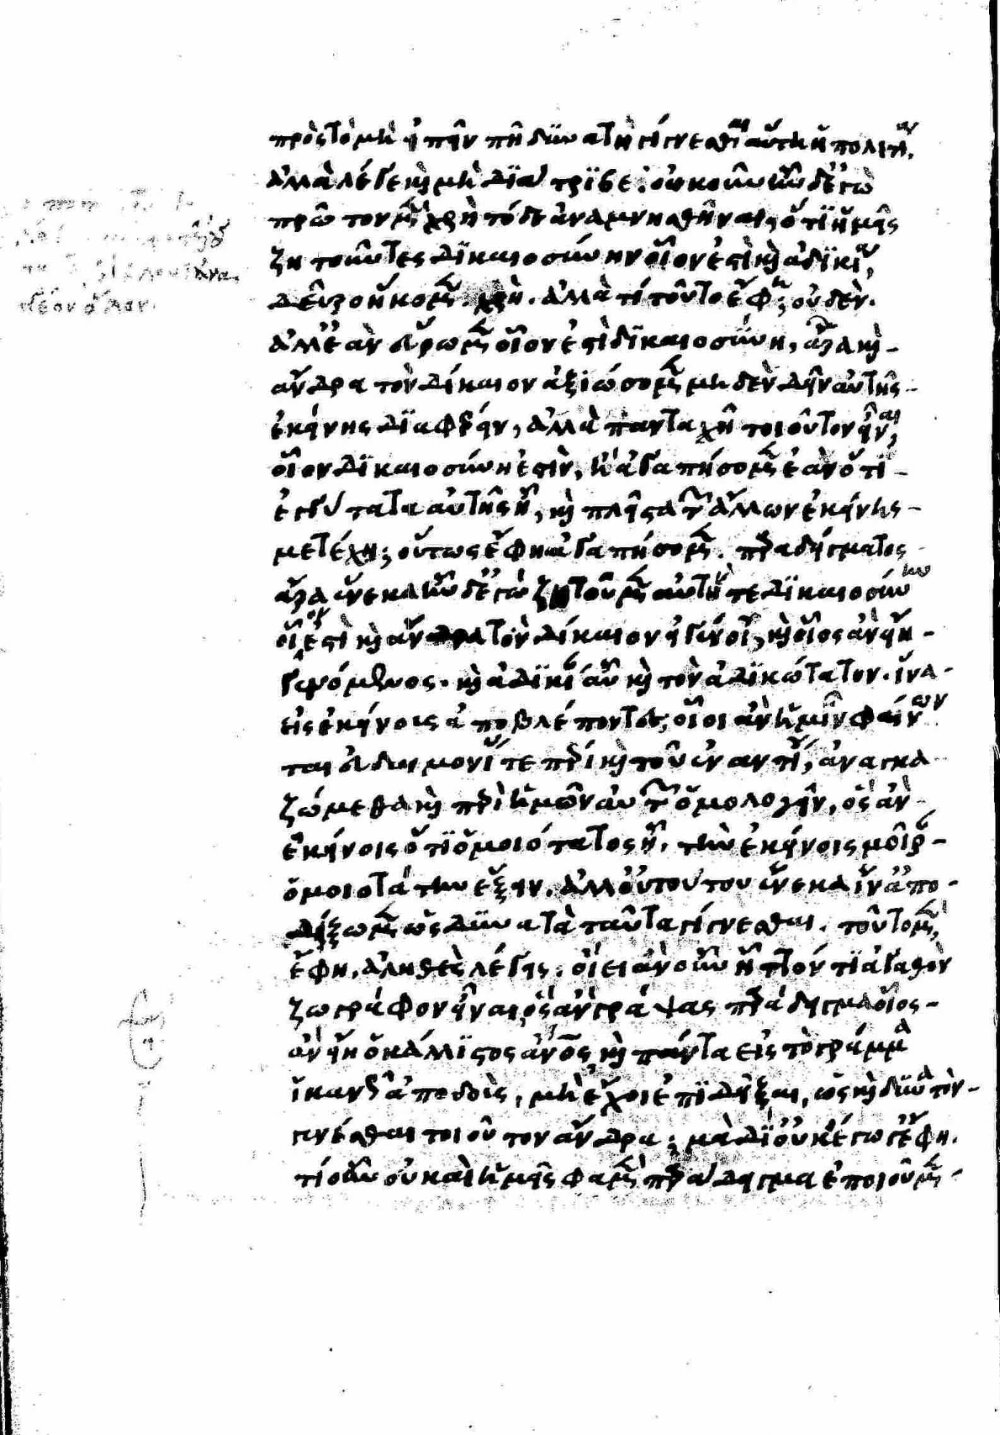 πρὸς τὸ μὴ εἰπεῖν πῆ δυνατὴ γίγνεσθαι αὕτη ἡ πολιτεία.
ἀλλὰ λέγε καὶ μὴ διάτριβε. οὐκοῦν ἦν δ' ἐγὼ
πρῶτον μὲν χρὴ τόδε ἀναμνησθῆναι, ὅτι ἡμεῖς
ζητοῦντες δικαιοσύνην οἷόν ἐστι καὶ ἀδικίαν,
δεῦρο ἥκομεν. χρή. ἀλλὰ τί τοῦτο ἔφη; οὐδέν.
ἀλλ' ἐὰν εὕρωμεν οἷόν ἐστι δικαιοσύνη, ἆρα καὶ
ἄνδρα τὸν δίκαιον ἀξιώσομεν μηδὲν δεῖν αὐτῆς
ἐκείνης διαφέρειν, ἀλλὰ πανταχῆ τοιοῦτον εἶναι,
οἷον δικαιοσύνη ἐστίν, ἢ ἀγαπήσομεν ἐὰν ὅτι
ἐγγύτατα αὐτῆς ᾖ, καὶ πλεῖστα τῶν ἄλλων ἐκείνης
μετέχῃ; οὕτως ἔφη ἀγαπήσομεν. παραδείγματος
ἄρα ἕνεκα ἦν δ' ἐγὼ ζητοῦμεν αὐτήν τε δικαιοσύνην
οἷόν ἐστι καὶ ἄνδρα τὸν δίκαιον εἰ γένοιτο, καὶ οἷος ἂν εἴη
γενόμενος. καὶ ἀδικίαν αὖ καὶ τὸν ἀδικώτατον. ἵνα
εἰς ἐκείνους ἀποβλέποντες, οἷοι ἂν ἡμῖν φαίνων
ται εὐδαιμονίας τε πέρι καὶ τοῦ ἐναντίου, ἀναγκα
ζώμεθα καὶ περὶ ἡμῶν αὐτῶν ὁμολογεῖν, ὃς ἂν
ἐκείνοις ὅτι ὁμοιότατος ᾖ, τὴν ἐκείνοις μοῖραν
ὁμοιοτάτην ἕξειν. ἀλλ' οὐ τούτου ἕνεκα ἵν' ἀπο
δείξωμεν ὡς δυνατὰ ταῦτα γίγνεσθαι. τοῦτο μὲν,
ἔφη, ἀληθὲς λέγεις. οἴει ἂν οὖν ἧττόν τι ἀγαθὸν
ζωγράφον εἶναι, ὃς ἂν γράψας παράδειγμα οἷος
ἂν εἴη ὁ κάλλιστος ἄνθρωπος καὶ πάντα εἰς τὸ γράμμα
ἱκανῶς ἀποδοὺς, μὴ ἔχοι ἐπιδεῖξαι, ὡς καὶ δυνατὸν
γενέσθαι τοιοῦτον ἄνδρα; μὰ Δί' οὐκ ἔγωγ' ἔφη.
τί οὖν οὐ καὶ ἡμεῖς φαμὲν παράδειγμα ἐποιοῦμεν